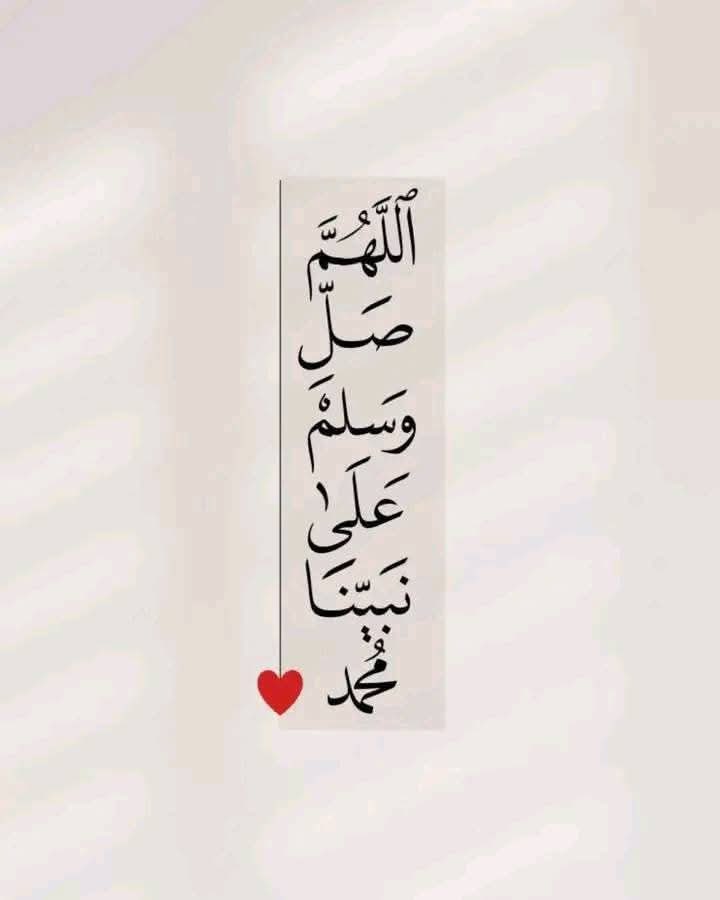 ٱللَّهُمَّ
صَلِّ
وَسَلِمْ
عَلَىٰ
نَبَيِّنَا
مُحمد